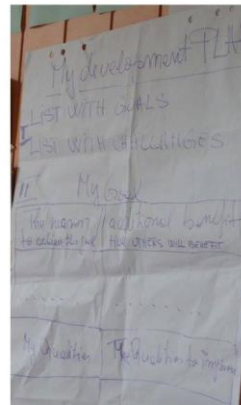 My development PLAN
LIST WITH GOALS
I
LIST WITH CHALLANGES
II My Goal
The reason additional benefit
to achieve this goal THE OTHERS WILL BENEFIT
My Qualities My Qualities to improve